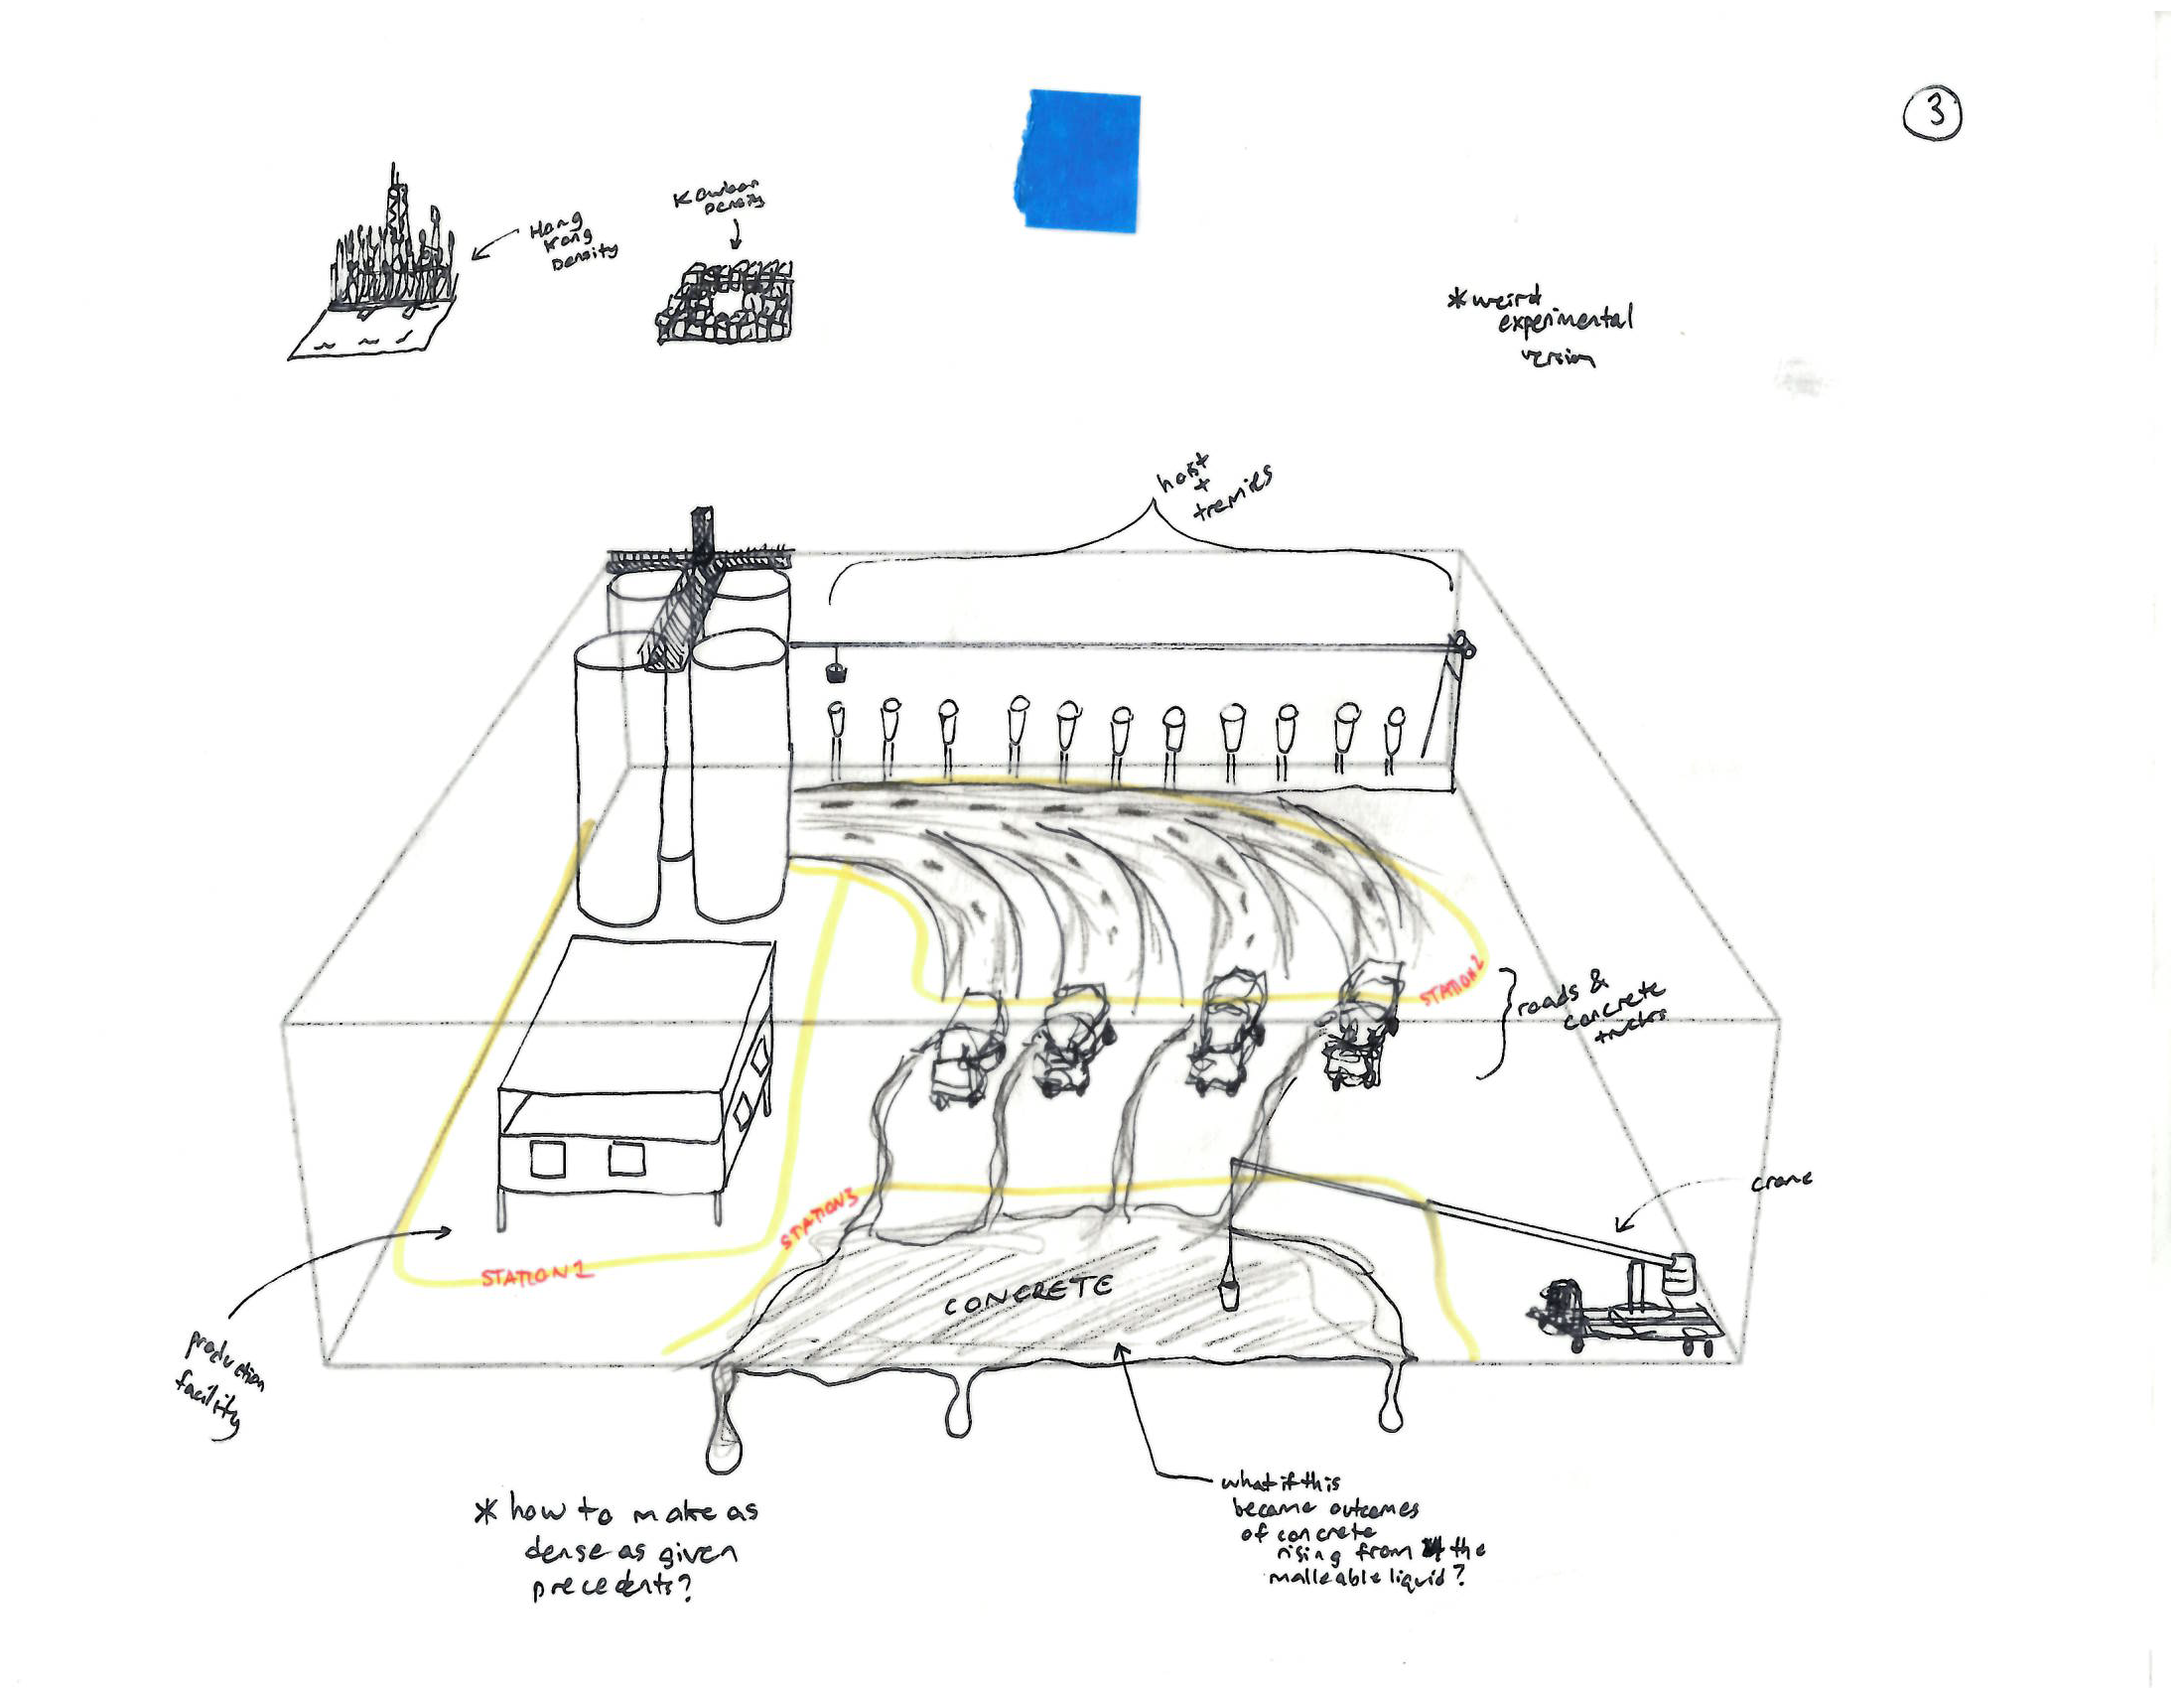 3
Kowloon
Density
Hong
Kong
Density
*weird
experimental
version
hoist
+
tremies
STATION2
roads &
concrete
trucks
crane
STATION3
STATION1
CONCRETE
production
facility
what if this
became outcomes
of concrete
rising from the
malleable liquid?
* how to make as
dense as given
precedents?